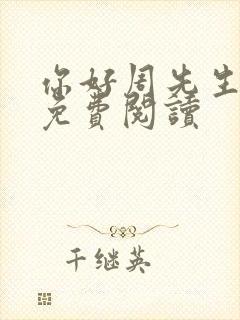 你好周先生
免費閱讀
千继英